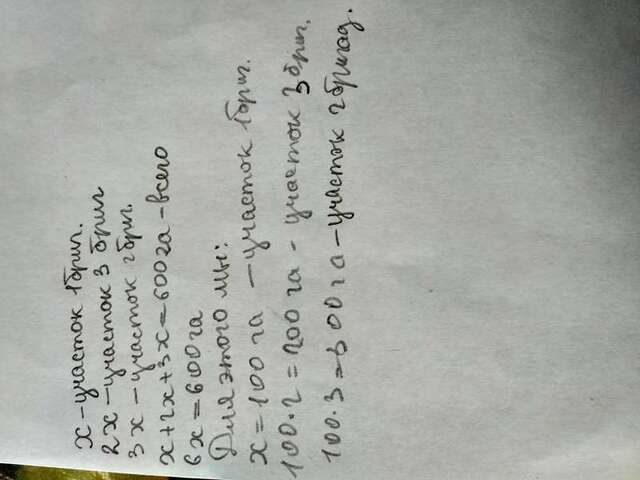 x - участок 1 бриг.
2x - участок 3 бриг
3x - участок 2 бриг.
x+2x+3x=600га - всего
6x=600га
Для этого мы:
x=100га - участок 1 бриг.
100·2=200га - участок 3 бриг.
100·3=300га - участок 2 бригад.